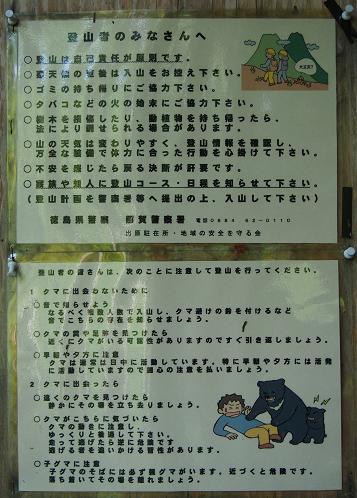 登山者のみなさんへ
○登山は自己責任が原則です。
○悪天候の直後は入山をお控え下さい。
○ゴミの持ち帰りにご協力下さい。
○タバコなどの火の始末にご協力下さい。
○樹木を損傷したり、動植物を持ち帰ったら、
法により罰せられる場合があります。
○山の天気は変わりやすく、登山情報を確認し、
万全な装備で体力に合った行動を心掛けて下さい。
○不安を感じたら戻る決断が肝要です。
○家族や知人に登山コース・日程を知らせて下さい。
(登山計画を警察署等へ提出の上、入山して下さい)
徳島県警察 那賀警察署 電話0884 62-0110
出原駐在所・地域の安全を守る会
登山者の皆さんは、次のことに注意して登山を行ってください。
1 クマに出会わないために
○音で知らせよう
なるべく複数人数で入山し、クマ避けの鈴を付けるなど
音でこちらの存在を知らせましょう。
○クマの糞や足跡を見つけたら
近くにクマがいる可能性がありますのですぐ引き返しましょう。
○早朝や夕方に注意
クマは通常は日中に活動しています。特に早朝や夕方には活発
に活動していますので細心の注意を払いましょう。
2 クマに出会ったら
○遠くのクマを見つけたら
静かにその場を立ち去りましょう。
○クマがこちらに気づいたら
クマの動きに注意し、
ゆっくりと後退して下さい。
走って逃げたら逆に危険です
逃げる者を追いかける習性があります。
○子グマに注意
子グマのそばには必ず親グマがいます。近づくと危険です。
落ち着いてその場を離れましょう。